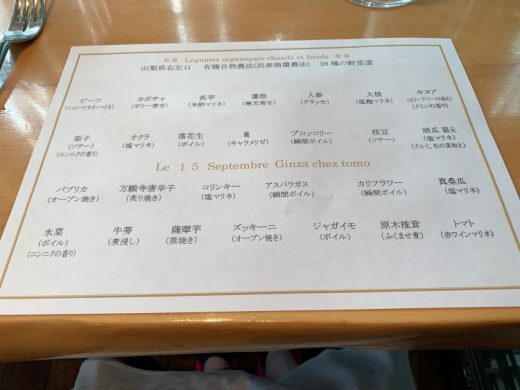 ※※ Légumes organiques chauds et froids ※※
山梨県右左口 有機自然農法(炭素循環農法) 28種の野菜達
ビーツ カボチャ 長芋 蓮根 人参 大根 キヌア
(シェリービネガーマリネ) (ゼリー寄せ) (米酢マリネ) (寒天寄せ) (グラッセ) (塩麹マリネ) (オリーブペースト和え)
(クミンの香り)
茄子 オクラ 落花生 ブロッコリー 枝豆 胡瓜
(ソテー) (塩マリネ) (ボイル) (キャラメリゼ) (瞬間ボイル) (ソテー) (塩マリネ)
(ニンニクの香り) (クルミ、松の実和え)
Le 15 Septembre Ginza chez tomo
パプリカ 万願寺唐辛子 コリンキー アスパラガス カリフラワー 真桑瓜
(オーブン焼き) (炙り焼き) (塩マリネ) (瞬間ボイル) (瞬間ボイル) (塩マリネ)
水菜 牛蒡 薩摩芋 ズッキーニ ジャガイモ 原木椎茸 トマト
(ボイル) (煮浸し) (蒸焼き) (オーブン焼き) (ボイル) (ふくませ煮) (赤ワインマリネ)
(ニンニクの香り)